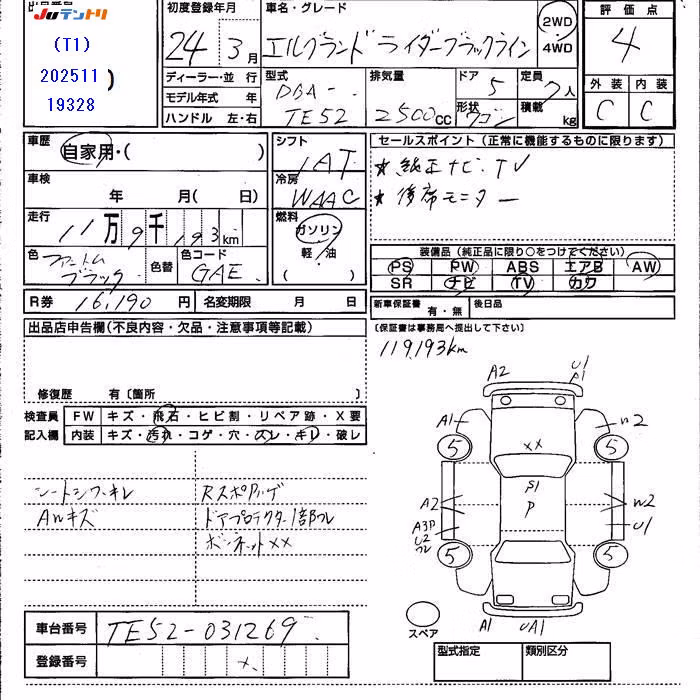 出品番号
JUテントリ
(T1)
202511 )
19328
初度登録年月
24年 3月
車名・グレード
エルグランド ライダーブラックライン
2WD
・
4WD
評価点
4
ディーラー・並 行
モデル年式 年
ハンドル 左・右
型式
DBA-
TE52
排気量
2500cc
ドア 5
形状 ワゴン
定員 7人
積載 kg
外装 内装
C C
車歴
自家用・( )
車検
年 月( 日)
走行
11万9千193km
色 ファントムブラック
色替
色コード
GAE
シフト
IAT
冷房
WAAC
燃料
ガソリン
軽・油
( )
セールスポイント(正常に機能するものに限ります)
★ 純正ナビ・TV
★ 後席モニター
装備品(純正品に限り○をつけてください)
PS PW ABS エアB AW
SR ナビ TV カワ
R券 16,190円
名変期限 月 日
新車保証書 有・無
後日品
(保証書は事務局へ提出して下さい)
119,193km
出品店申告欄(不良内容・欠品・注意事項等記載)
修復歴 有〔箇所 〕
検査員
記入欄
FW キズ・飛石・ヒビ割・リペア跡・X要
内装 キズ・汚れ・コゲ・穴・スレ・キレ・破レ
シートシワ・キレ
AWキズ
Rスポアッゲ
ドアプロテクター1部ワレ
ボンネットXX
A2
U1
A1
A1
W2
5
5
XX
S1
P
A2
A3P
U2
ワレ
W2
U1
5
5
スペア
A1
UA1
車台番号 TE52-031269
登録番号
型式指定 類別区分